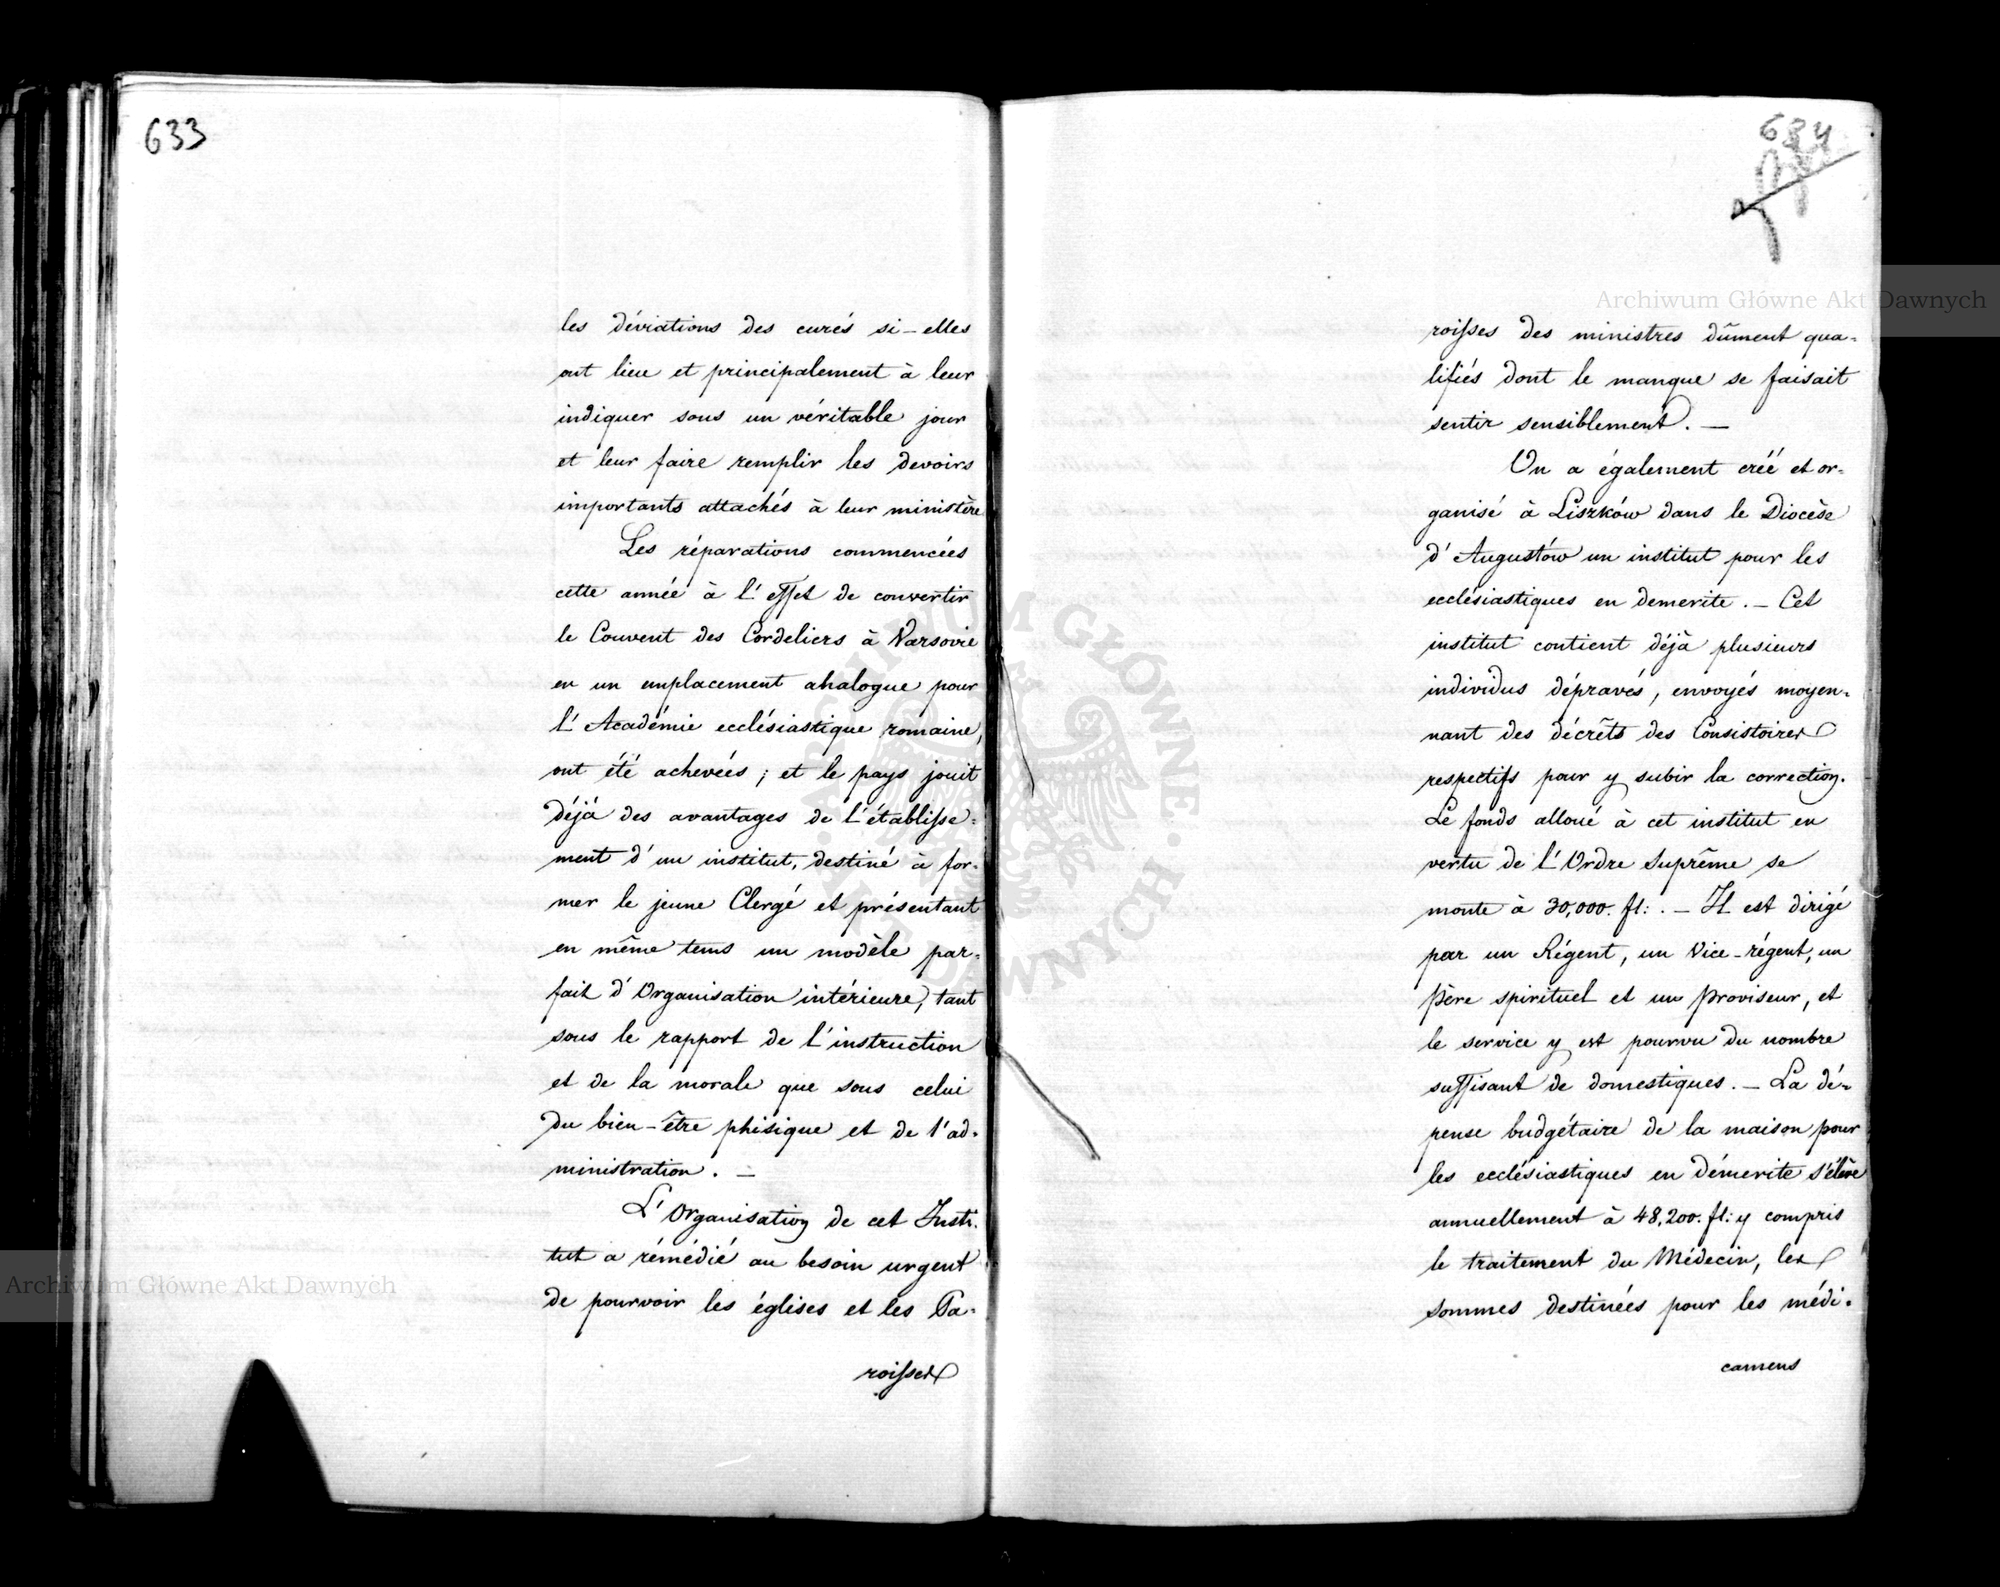 633
les déviations des curés si-elles
ont lieu et principalement à leur
indiquer sous un véritable jour
et leur faire remplir les devoirs
importants attachés à leur ministère
Les réparations commencées
cette année à l'effet de convertir
le Couvent des Cordeliers à Varsovie
en un emplacement analogue pour
l'Académie ecclésiastique romaine,
ont été achevées; et le pays jouit
déjà des avantages de l'établisse=
ment d'un institut, destiné à for=
mer le jeune Clergé et présentant
en même tems un modèle par=
fait d'Organisation intérieure, tant
sous le rapport de l'instruction
et de la morale que sous celui
du bien-être phisique et de l'ad=
ministration. —
L'Organisation de cet Insti=
tut a rémédié au besoin urgent
de pourvoir les églises et les Pa=
roisses
634
roisses des ministres dûment qua=
lifiés dont le manque se faisait
sentir sensiblement. —
On a également créé et or=
ganisé à Liszków dans le Diocèse
d'Augustów un institut pour les
ecclésiastiques en demerite. — Cet
institut contient déjà plusieurs
individus dépravés, envoyés moyen=
nant des décrêts des Consistoires
respectifs pour y subir la correction.
Le fonds alloué à cet institut en
vertu de l'Ordre Suprême se
monte à 30,000. fl:. — Il est dirigé
par un Régent, un Vice-régent, un
Père spirituel et un Proviseur, et
le service y est pourvu du nombre
suffisant de domestiques. — La dé=
pense budgétaire de la maison pour
les ecclésiastiques en démerite s'élève
annuellement à 48,200. fl: y compris
le traitement du Médecin, les
sommes destinées pour les médi=
camens
Archiwum Główne Akt Dawnych
Archiwum Główne Akt Dawnych
ARCHIWUM GŁÓWNE AKT DAWNYCH